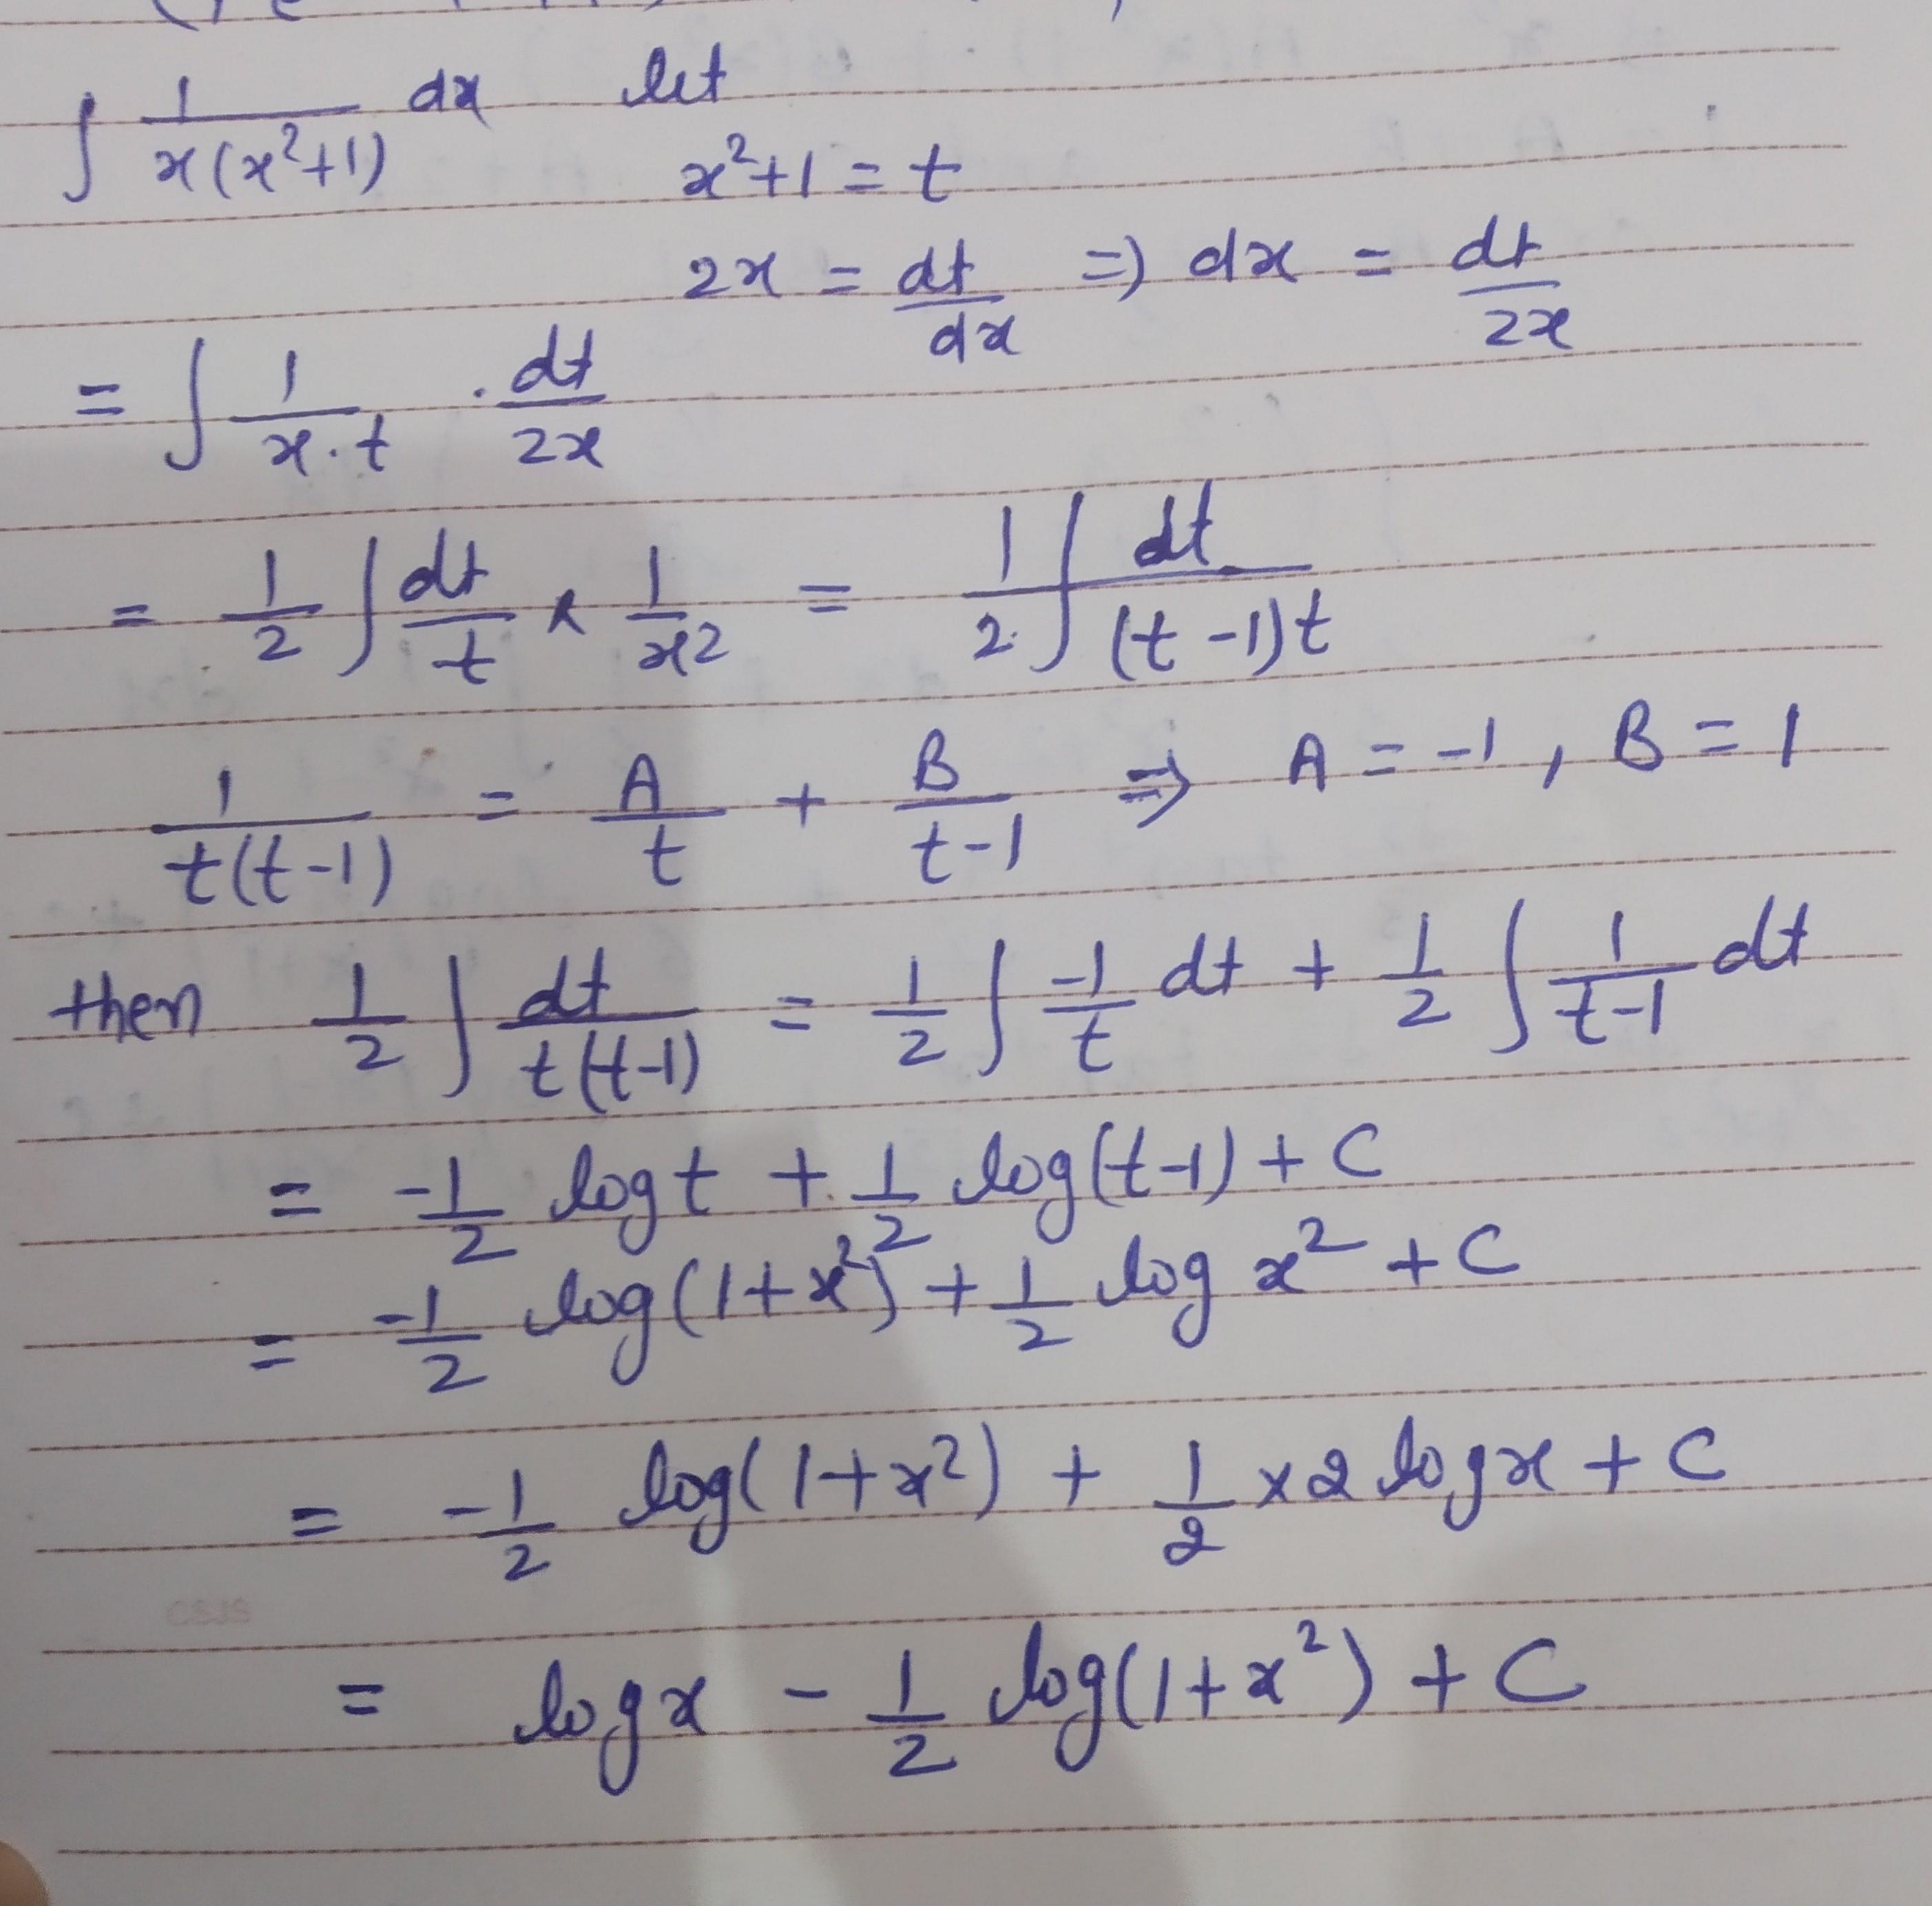 ∫ 1/(x(x²+1)) dx let
x²+1 = t
2x = dt/dx ⇒ dx = dt/2x
= ∫ 1/(x.t) . dt/2x
= 1/2 ∫ dt/t × 1/x² = 1/2 ∫ dt/((t-1)t)
1/(t(t-1)) = A/t + B/(t-1) ⇒ A = -1, B = 1
then 1/2 ∫ dt/(t(t-1)) = 1/2 ∫ -1/t dt + 1/2 ∫ 1/(t-1) dt
= -1/2 log t + 1/2 log(t-1) + C
= -1/2 log(1+x²) + 1/2 log x² + C
= -1/2 log(1+x²) + 1/2 × 2 log x + C
CSJS
= log x - 1/2 log(1+x²) + C